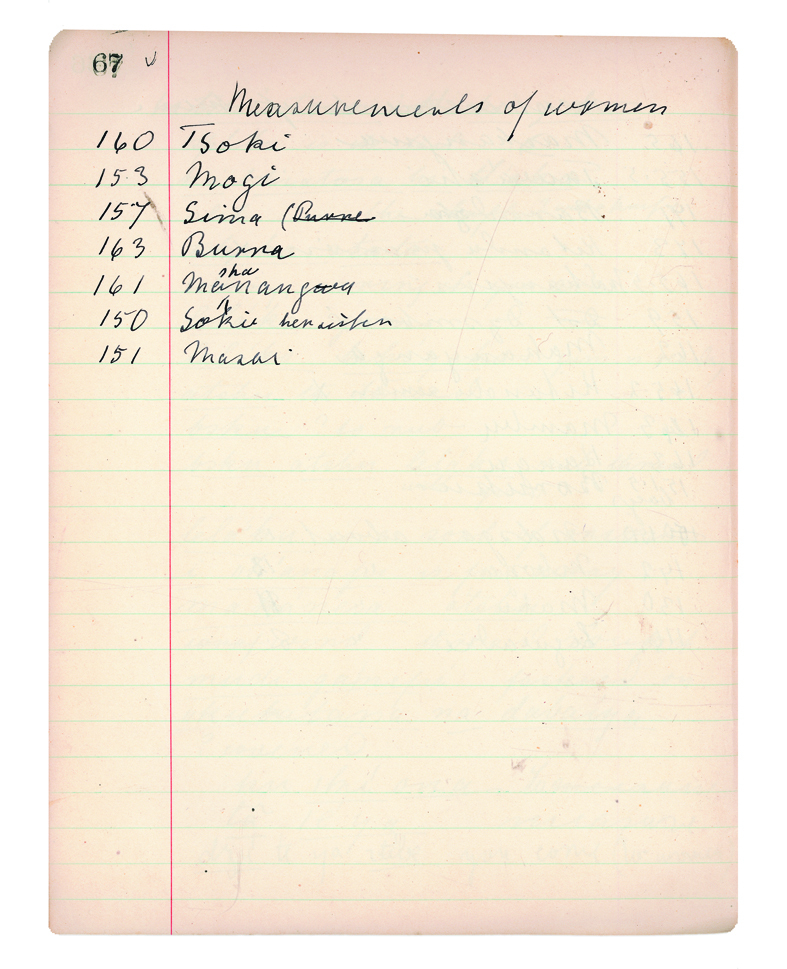 67
Measurements of women
160 Tsoki
153 Mogi
157 Sima (
163 Burra
161 Mashanangwa
150 Sokie her sister
151 Masai